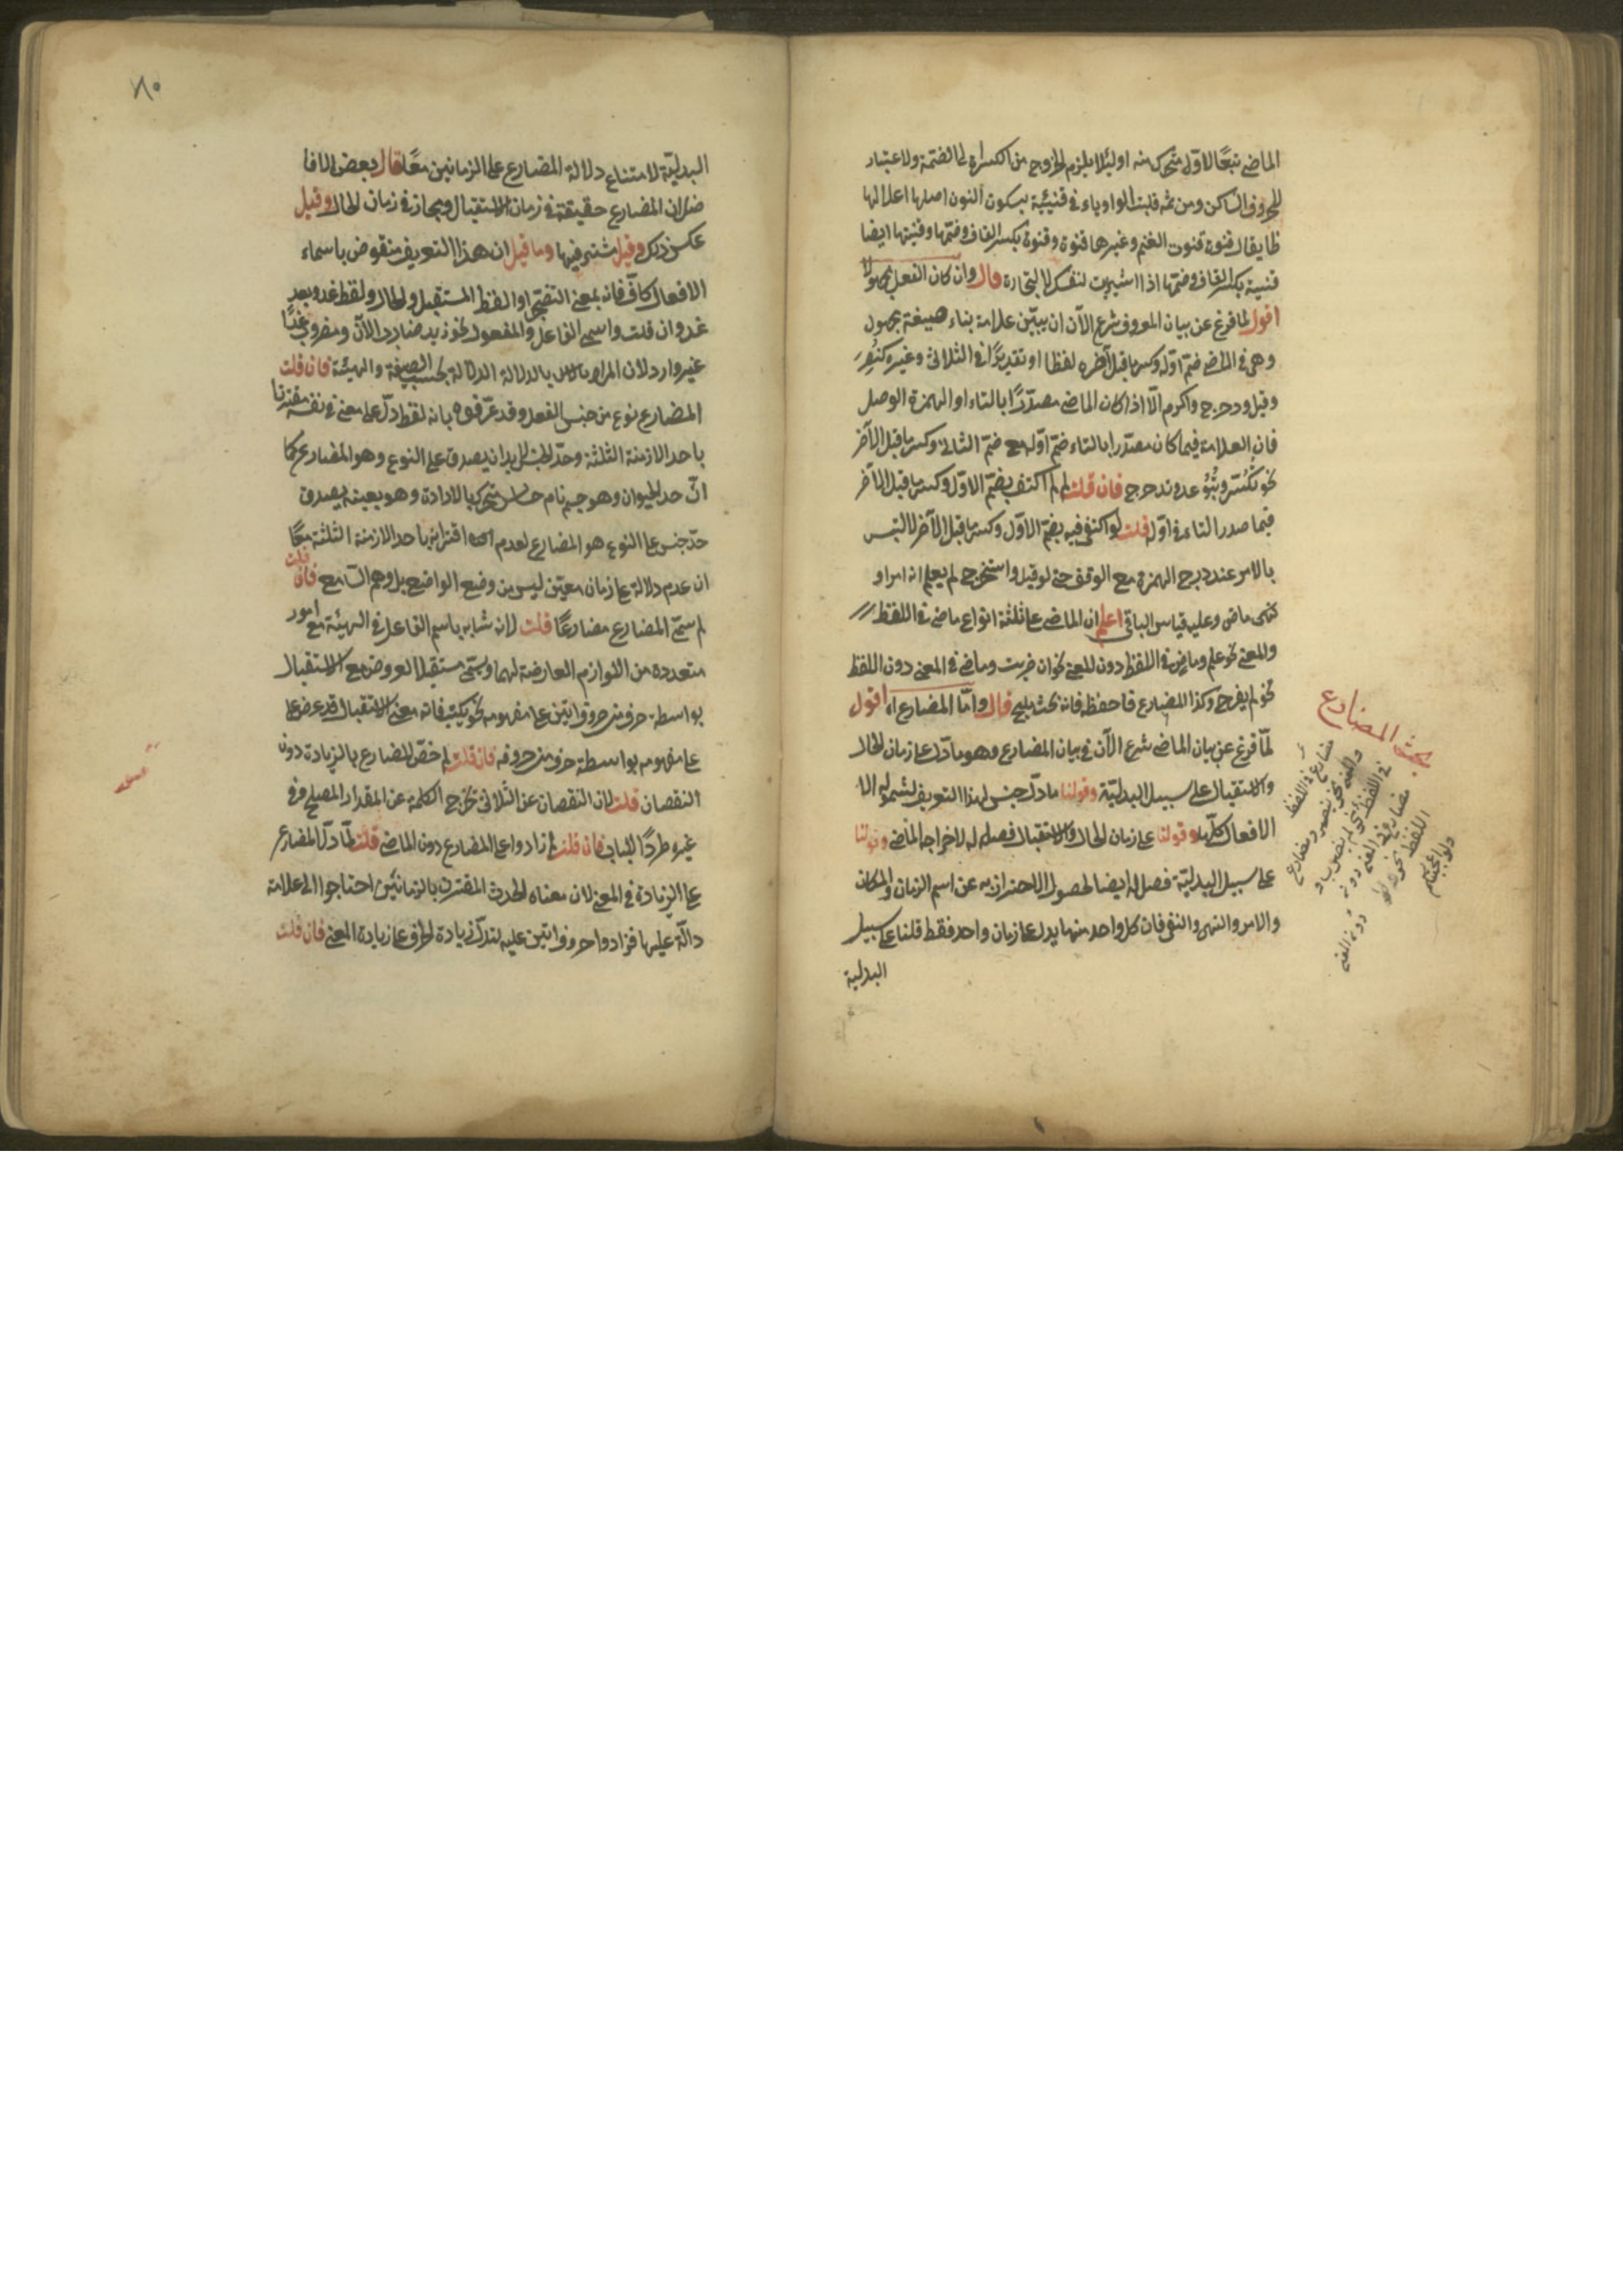 الماضى تبعًا لاوّل متحرك منه او لئلا يلزم الخروج من الكسرة الى الضمة ولا اعتبار
للحروف الساكن ومن ثمه قلبت الواو ياء فى قنية بسكون النون اصلها
يقال قنوة قنوت الغنم وغيرها قنوة وقنوة بكسر القاف وضمّها وقنيتها ايضا
قنية بكسر القاف وضمّها اذا اشتريت لنفسك لا للتجارة قال وان كان الفعل مجهولا
اقول لما فرغ عن بيان المعروف شرع الآن ان يبيّن علامة بناء صيغة مجهول
وهى فى الماضى ضمّ اوّله وكسر ما قبل آخره لفظا او تقديرًا فى الثلاثى وغيره كنُصِر
وقيل ودحرج واكرم الّا اذا كان الماضى مصدّرًا بالتاء او الهمزة الوصل
فان العلامة فيما كان مصدّرا بالتاء ضمّ اوّله مع ضمّ الثانى وكسر ما قبل الآخر
نحو تُكُسّر وتُبُوعد وتدحرج فان قلت لم لم اكتف بضمّ الاوّل وكسر ما قبل الآخر
فيما صدر التاء فى اوّله قلت لو اكتفى فيه بضمّ الاوّل وكسر ما قبل الآخر لالتبس
بالامر عند درج الهمزة مع الوقف حتى لو قيل واستخرج لم يعلم انه امر او
ماض وعليه قياس الباقى اعلم ان الماضى على ثلثة انواع ماض فى اللفظ
والمعنى نحو علم وماض فى اللفظ دون المعنى نحو ان ضربت وماض فى المعنى دون اللفظ
نحو لم يفرح وكذا المضارع فاحفظه فانه بحث مليح قال وامّا المضارع اه اقول
لمّا فرغ عن بيان الماضى شرع الآن فى بيان المضارع وهو ما دلّ على زمان الحال
والاستقبال على سبيل البدليّة وقولنا ما دلّ جنس لهذا التعريف لشموله الا
الافعال كلّها وقولنا على زمان الحال والاستقبال فصل له لاخراجه الماضى وقولنا
على سبيل البدليّة فصل له ايضا لحصول الاحتراز به عن اسم الزمان والمكان
والامر والنهى والنفى فان كل واحد منها يدل على زمان واحد فقط قلنا على سبيل
البدلية
بحث المضارع
مضارع فى اللفظ
والمعنى نحو ينصر ومضارع
فى اللفظ دون
مضارع فى المعنى دون
اللفظ نحو
دون المعنى
٨٠
البدليّة لامتناع دلالة المضارع على الزمانين معًا قال بعض الافا
ضل ان المضارع حقيقة فى زمان الاستقبال ومجاز فى زمان الحال وقيل
عكس ذلك وقيل مشترك فيها وما قيل ان هذا التعريف منقوض باسماء
الافعال كافّ فانه بمعنى اتضجّر او الفظ المستقبل والحال ولفظ غد وبعد
غد وان قلت واسمى الفاعل والمفعول نحو زيد ضارب الآن ومضروب غدًا
غير وارد لان المراد بالدلالة الدلالة بحسب الصيغة والهيئة فان قلت
المضارع نوع من جنس الفعل وقد عرّفوه بانه لفظ دلّ على معنى فى نفسه مقترنا
باحد الازمنة الثلثة وحدّ الجنس لا بد ان يصدق على النوع وهو المضارع كما
انّ حد الحيوان وهو جسم نام حساس متحرك بالارادة وهو بعينه يصدق
حدّ جنس على النوع هو المضارع لعدم اقترانه باحد الازمنة الثلثة معًا
ان عدم دلالة على زمان معيّن ليس من وضع الواضع بل وهم السّامع فان قلت
لم سمّى المضارع مضارعًا قلت لانه شابه باسم الفاعل فى الهيئة مع امور
متعددة من اللوازم العارضة لهما ويسمّى مستقبلا لعروض مع الاستقبال
بواسطة حرف من حروف اتين على مفهومه نحو يكتب فانه معنى الاستقبال قد عرض على
على مفهومه بواسطة حرف من حروفه فان قلت لم خصّ المضارع بالزيادة دون
النقصان قلت لان النقصان عن الثلاثى تخرج الكلمة عن المقدار المصلح وفى
غيره طردًا للباب فان قلت لم زادوا على المضارع دون الماضى قلت لمّا دلّ المضارع
على الزيادة فى المعنى لان معناه الحدث المقترن بالزمانين احتاجوا الى علامة
دالّة عليها فزادوا حروف اتين عليه لتدلّ زيادة الحرف على زيادة المعنى فان قلت